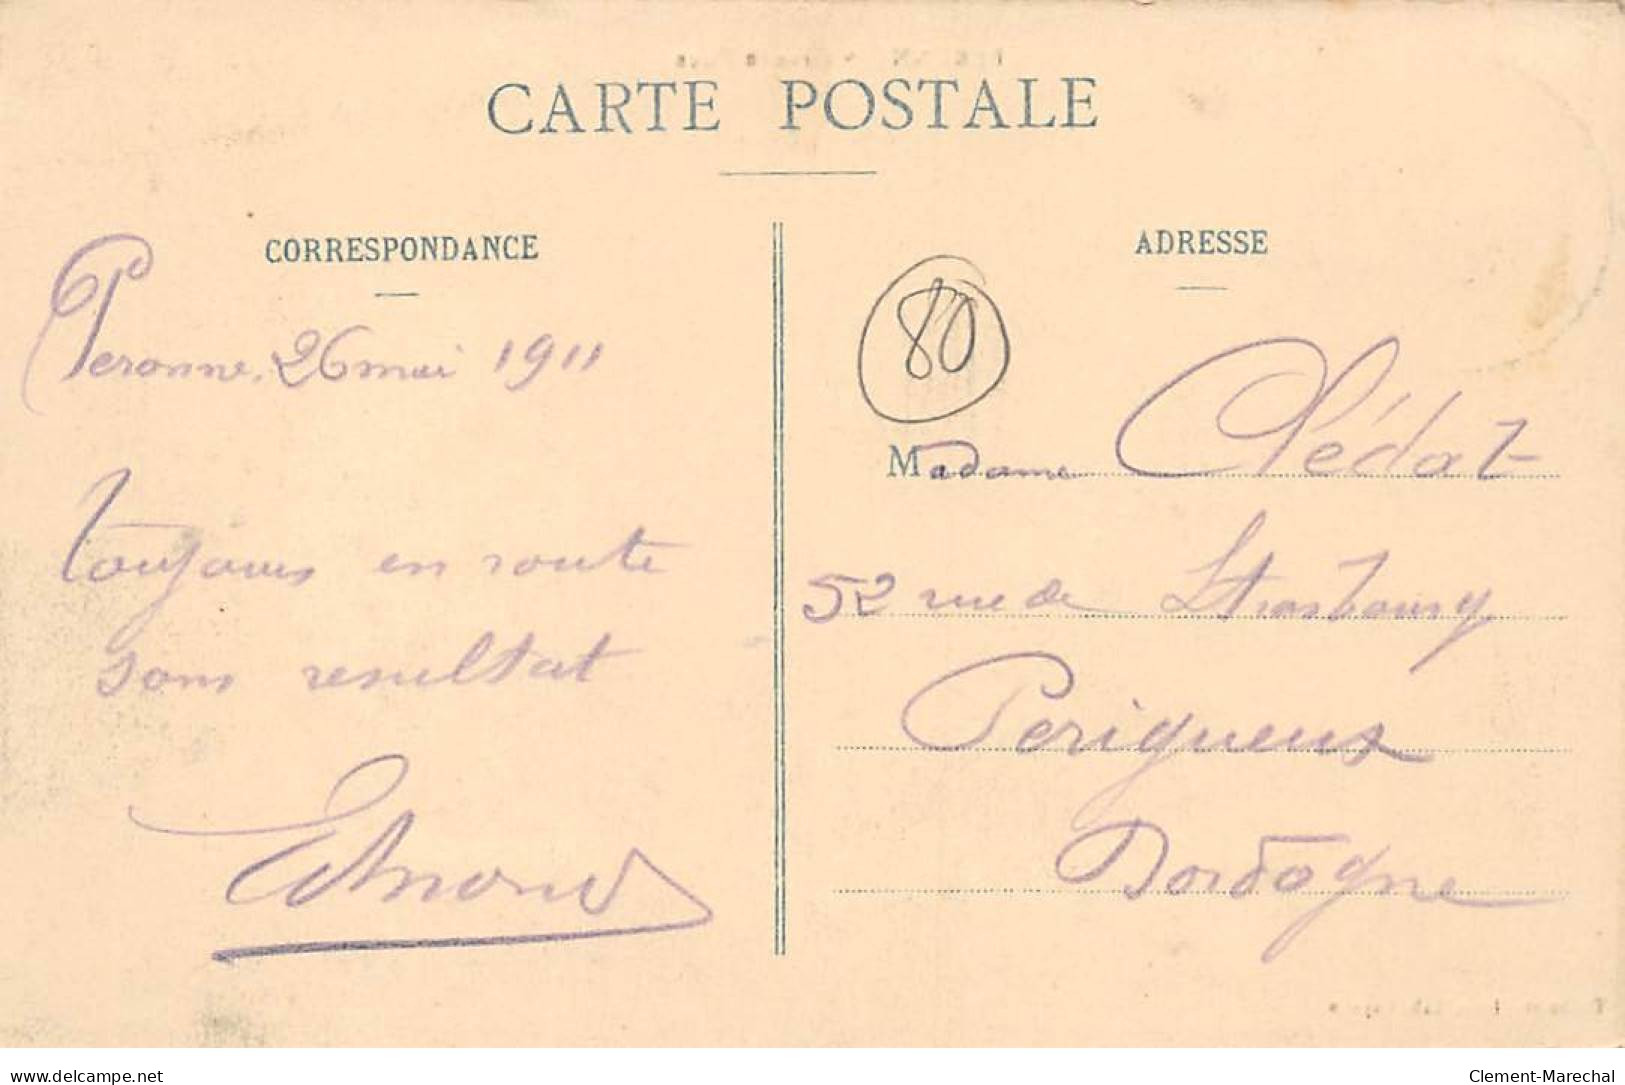 CARTE POSTALE
CORRESPONDANCE
Peronne, 26 mai 1911
toujours en route
sans resultat
Edmond
ADRESSE
80
Madame Clédat
52 rue de Strasbourg
Perigueux
Dordogne
www.delcampe.net
Clement-Marechal